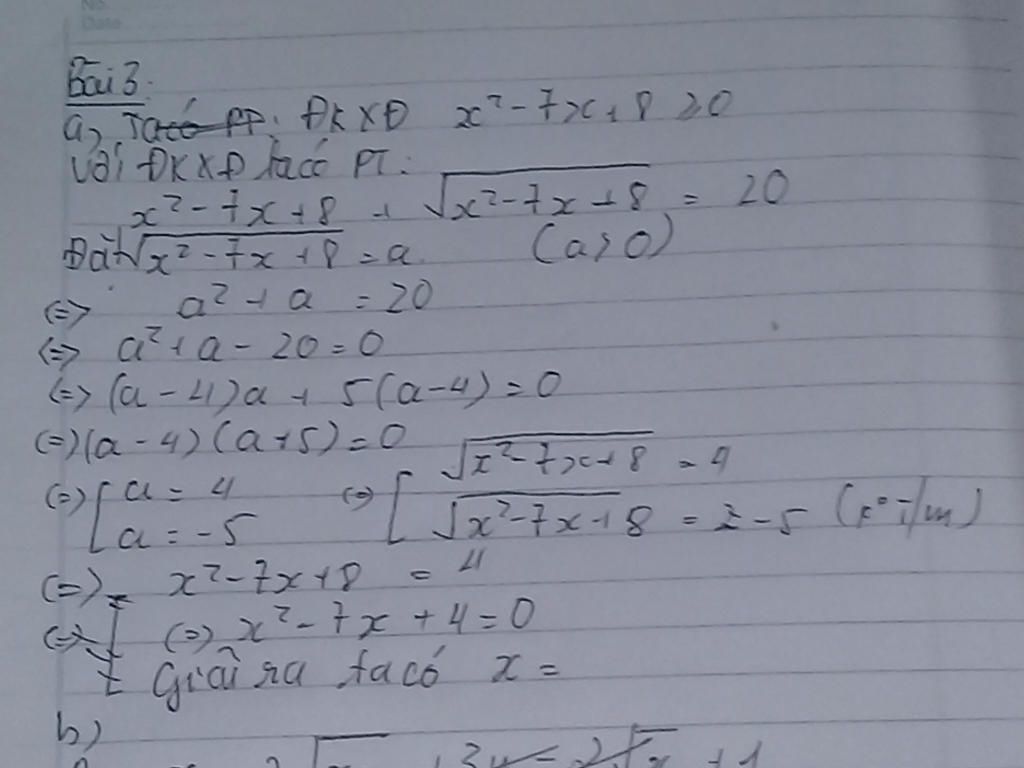 No.
Date
Bài 3.
a, Ta có PT. ĐKXĐ x² - 7x + 8 ≥ 0
Với ĐKXĐ ta có PT:
x² - 7x + 8 + √(x² - 7x + 8) = 20
Đặt √(x² - 7x + 8) = a. (a ≥ 0)
<=> a² + a = 20
<=> a² + a - 20 = 0
<=> (a - 4)a + 5(a - 4) = 0
<=> (a - 4)(a + 5) = 0
<=> [ a = 4 <=> [ √(x² - 7x + 8) = 4
a = -5 √(x² - 7x + 8) = -5
<=> x² - 7x + 8 = 4
<=> <=> x² - 7x + 4 = 0
Giải ra ta có x =
b)